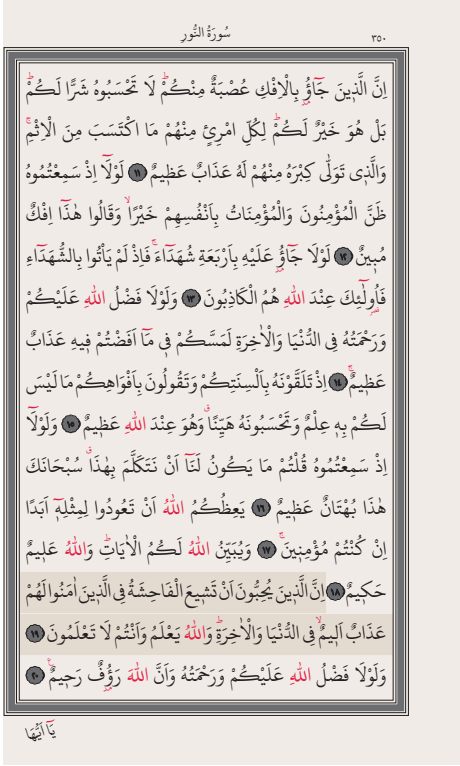 سُورَةُ النُّورِ ٣٥٠
اِنَّ الَّذ۪ينَ جَٓاؤُ۫ بِالْاِفْكِ عُصْبَةٌ مِنْكُمْۜ لَا تَحْسَبُوهُ شَرًّا لَكُمْۜ
بَلْ هُوَ خَيْرٌ لَكُمْۜ لِكُلِّ امْرِئٍ مِنْهُمْ مَا اكْتَسَبَ مِنَ الْاِثْمِۚ
وَالَّذ۪ى تَوَلّٰى كِبْرَهُ مِنْهُمْ لَهُ عَذَابٌ عَظ۪يمٌ ﴿١١﴾ لَوْلَٓا اِذْ سَمِعْتُمُوهُ
ظَنَّ الْمُؤْمِنُونَ وَالْمُؤْمِنَاتُ بِاَنْفُسِهِمْ خَيْرًاۙ وَقَالُوا هٰذَٓا اِفْكٌ
مُب۪ينٌ ﴿١٢﴾ لَوْلَا جَٓاؤُ۫ عَلَيْهِ بِاَرْبَعَةِ شُهَدَٓاءَۚ فَاِذْ لَمْ يَأْتُوا بِالشُّهَدَٓاءِ
فَاُو۬لٰٓئِكَ عِنْدَ اللّٰهِ هُمُ الْكَاذِبُونَ ﴿١٣﴾ وَلَوْلَا فَضْلُ اللّٰهِ عَلَيْكُمْ
وَرَحْمَتُهُ فِى الدُّنْيَا وَالْاٰخِرَةِ لَمَسَّكُمْ ف۪ى مَٓا اَفَضْتُمْ ف۪يهِ عَذَابٌ
عَظ۪يمٌۚ ﴿١٤﴾ اِذْ تَلَقَّوْنَهُ بِاَلْسِنَتِكُمْ وَتَقُولُونَ بِاَفْوَاهِكُمْ مَا لَيْسَ
لَكُمْ بِه۪ عِلْمٌ وَتَحْسَبُونَهُ هَيِّنًاۗ وَهُوَ عِنْدَ اللّٰهِ عَظ۪يمٌ ﴿١٥﴾ وَلَوْلَٓا
اِذْ سَمِعْتُمُوهُ قُلْتُمْ مَا يَكُونُ لَنَٓا اَنْ نَتَكَلَّمَ بِهٰذَاۗ سُبْحَانَكَ
هٰذَا بُهْتَانٌ عَظ۪يمٌ ﴿١٦﴾ يَعِظُكُمُ اللّٰهُ اَنْ تَعُودُوا لِمِثْلِه۪ٓ اَبَدًا
اِنْ كُنْتُمْ مُؤْمِن۪ينَۚ ﴿١٧﴾ وَيُبَيِّنُ اللّٰهُ لَكُمُ الْاٰيَاتِۜ وَاللّٰهُ عَل۪يمٌ
حَك۪يمٌ ﴿١٨﴾ اِنَّ الَّذ۪ينَ يُحِبُّونَ اَنْ تَش۪يعَ الْفَاحِشَةُ فِى الَّذ۪ينَ اٰمَنُوا لَهُمْ
عَذَابٌ اَل۪يمٌۙ فِى الدُّنْيَا وَالْاٰخِرَةِۜ وَاللّٰهُ يَعْلَمُ وَاَنْتُمْ لَا تَعْلَمُونَ ﴿١٩﴾
وَلَوْلَا فَضْلُ اللّٰهِ عَلَيْكُمْ وَرَحْمَتُهُ وَاَنَّ اللّٰهَ رَؤُ۫فٌ رَح۪يمٌ۟ ﴿٢٠﴾
يَٓا اَيُّهَا